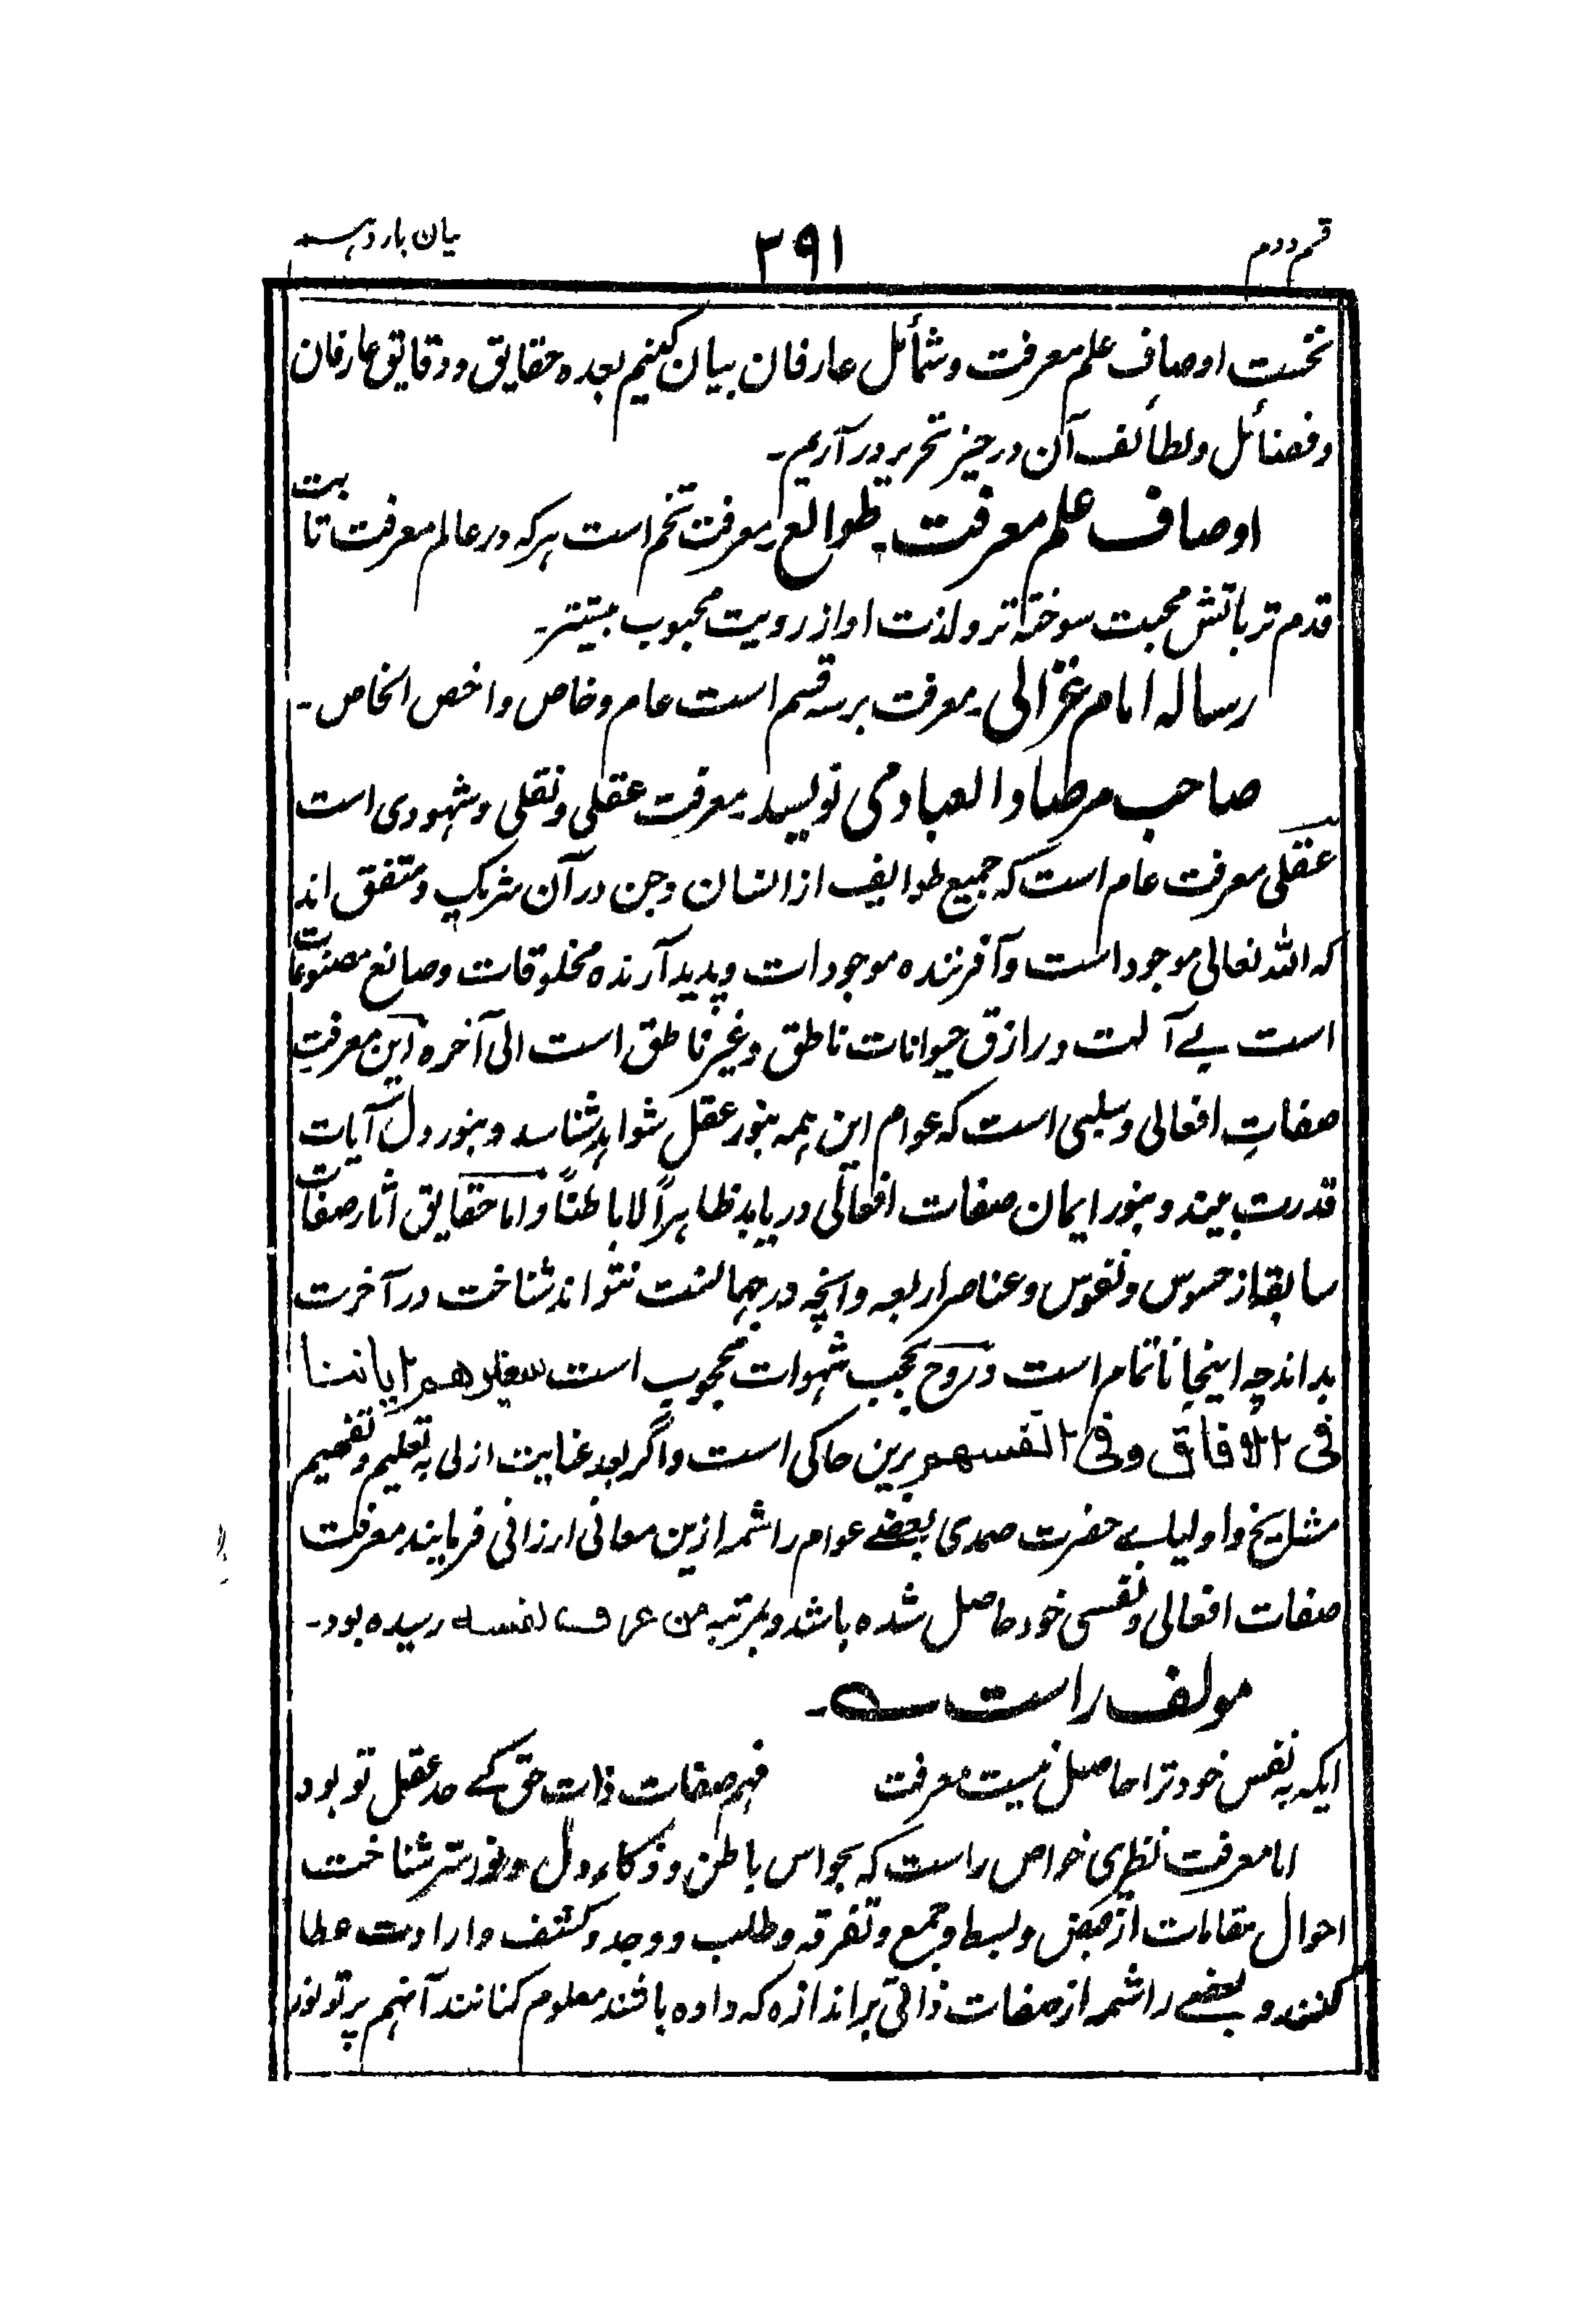 قسم دوم
۳۹۱
بیان بازدہم
نخست اوصاف علم معرفت و شمائل عارفان بیان کنیم بعدہ حقایق و دقایق عارفان
و فضائل و لطائف آن در حیز تحریر در آریم۔
اوصاف علم معرفت۔ طوالع۔ معرفت تخم است ہر کہ در عالم معرفت ثابت
قدم تر بآتش محبت سوختہ تر و لذت او از رویت محبوب بیشتر۔
رسالہ امام غزالی۔ معرفت بر سہ قسم است عام و خاص و اخص الخاص۔
صاحب مرصاد العباد می نویسد۔ معرفت عقلی و نقلی و شہودی است
عقلی معرفت عام است کہ جمیع طوایف از انسان و جن در آن شریک و متفق اند
کہ اللہ تعالی موجود است و آفرنندہ موجودات و پدید آرندہ مخلوقات و صانع مصنوعات
است بے آلت و رازق حیوانات ناطق و غیر ناطق است الی آخرہ این معرفت
صفاتِ افعالی و سلبی است کہ عوام این ہمہ بنور عقل شواہد شناسد و بنور دل آیات
قدرت بیند و بنور ایمان صفات افعالی دریابد ظاہراً لا باطناً و اما حقایق آثار صفات
سابقا از حسوس و نفوس و عناصر اربعہ و آنچہ در جہانست نتواند شناخت در آخرت
بداند چہ اینجا ناتمام است و روح بحجب شہوات محجوب است سنریهم ایاتنا
فی الآفاق وفی انفسهم برین حاکی است و اگر بعد عنایت ازلی بہ تعلیم و تفہیم
مشایخ و اولیاے حضرت صمدی بعضے عوام را شمہ ازین معانی ارزانی فرمایند معرفت
صفات افعالی و نفسی خود حاصل شدہ باشد و بمرتبہ من عرف نفسہ رسیدہ بود۔
مولف راست ؎۔
ایکہ بہ نفس خود ترا حاصل نیست معرفت فہم صفات ذات حق کے حد عقل تو بود
اما معرفت نظری خواص راست کہ بحواس باطن و ذکاء دل و نور سر شناخت
احوال مقامات از قبض و بسط و جمع و تفرقہ و طلب و وجد و کشف و ارادت عطا
کنند و بعضے را شمہ از صفات ذاتی بر اندازہ کہ دادہ باشند معلوم کنانند آنہم پرتو نور